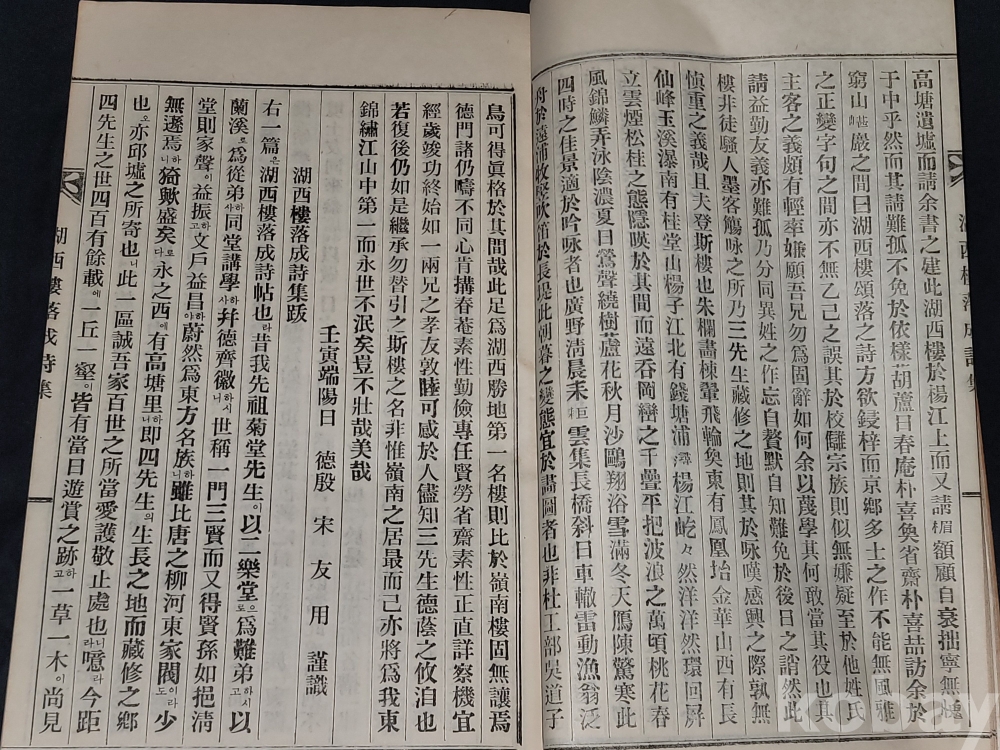 高塘遺墟而請余書之建此湖西樓於楊江上而又請楣額顧自衰拙寧無愧
于中乎然而其請難孤不免於依樣葫蘆日春庵朴喜奐省齋朴喜喆訪余於
窮山嵁巖之間曰湖西樓頌落之詩方欲鋟梓而京鄉多士之作不能無風雅
之正變字句之間亦不無乙己之誤其於校讎宗族則似無嫌疑至於他姓氏
主客之義頗有輕率嫌願吾兄勿爲固辭如何余以蔑學其何敢當其役也其
請益勤友義亦難孤乃分同異姓之作忘自贅默自知難免於後日之誚然此
樓非徒騷人墨客觴咏之所乃三先生藏修之地則其於咏嘆感興之際孰無
愼重之義哉且夫登斯樓也朱欄畵棟翬飛輪奐東有鳳凰坮金華山西有長
仙峰玉溪瀑南有桂堂山楊子江北有錢塘浦潯楊江屹々然洋洋然環回屛
立雲煙松桂之態隱暎於其間而遠呑岡巒之千疊平把波浪之萬頃桃花春
風錦鱗弄泳陰濃夏日鶯聲繞樹蘆花秋月沙鷗翔浴雪滿冬天鴈陳驚寒此
四時之佳景適於吟咏者也廣野淸晨耒耟雲集長橋斜日車轍雷動漁翁泛
舟於遠浦牧竪吹笛於長堤此朝暮之變態宜於畵圖者也非杜工部吳道子
湖西樓落成詩集
鳥可得眞格於其間哉此足爲湖西勝地第一名樓則比於嶺南樓固無讓焉
德門諸仍疇不同心肯搆春菴素性勤儉專任賢勞省齋素性正直詳察機宜
經歲竣功終始如一兩兄之孝友敦睦可感於人儘知三先生德蔭之攸洎也
若復後仍如是繼承勿替引之斯樓之名非惟嶺南之居最而己亦將爲我東
錦繡江山中第一而永世不泯矣豈不壯哉美哉
壬寅端陽日 德殷 宋友用 謹識
湖西樓落成詩集跋
右一篇은湖西樓落成詩帖也라昔我先祖菊堂先生이以二樂堂으로爲難弟하시고以
蘭溪로爲從弟하사同堂講學하사幷德齊徽하시니世稱一門三賢而又得賢孫如挹淸
堂則家聲이益振하고文戶益昌하야蔚然爲東方名族하니雖比唐之柳河東家閥이라도少
無遜焉하니猗歟盛矣로다永之西에有高塘里하니即四先生의生長之地而藏修之鄉
也오亦邱墟之所寄也니此一區誠吾家百世之所當愛護敬止處也라니噫라今距
四先生之世四百有餘載에一丘一壑이皆有當日遊賞之跡하고一草一木이尚見
湖西樓落成詩集
kobay